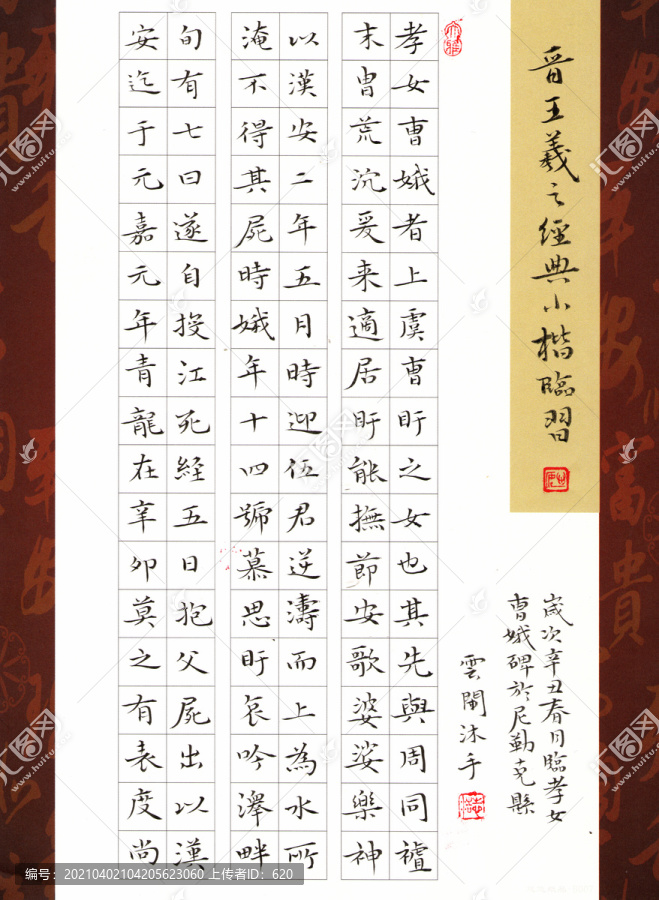 晋王羲之經典小楷臨習
孝女曹娥者上虞曹盱之女也其先與周同襢
末胄荒沉爰来適居盱能撫節安歌婆娑樂神
以漢安二年五月時迎伍君逆濤而上為水所
淹不得其屍時娥年十四號慕思盱哀吟澤畔
旬有七日遂自投江死經五日抱父屍出以漢
安迄于元嘉元年青龍在辛卯莫之有表度尚
歲次辛丑春月臨孝女
曹娥碑於尼勒克縣
雲閒沐手
编号：20210402104205623060 上传者ID：620